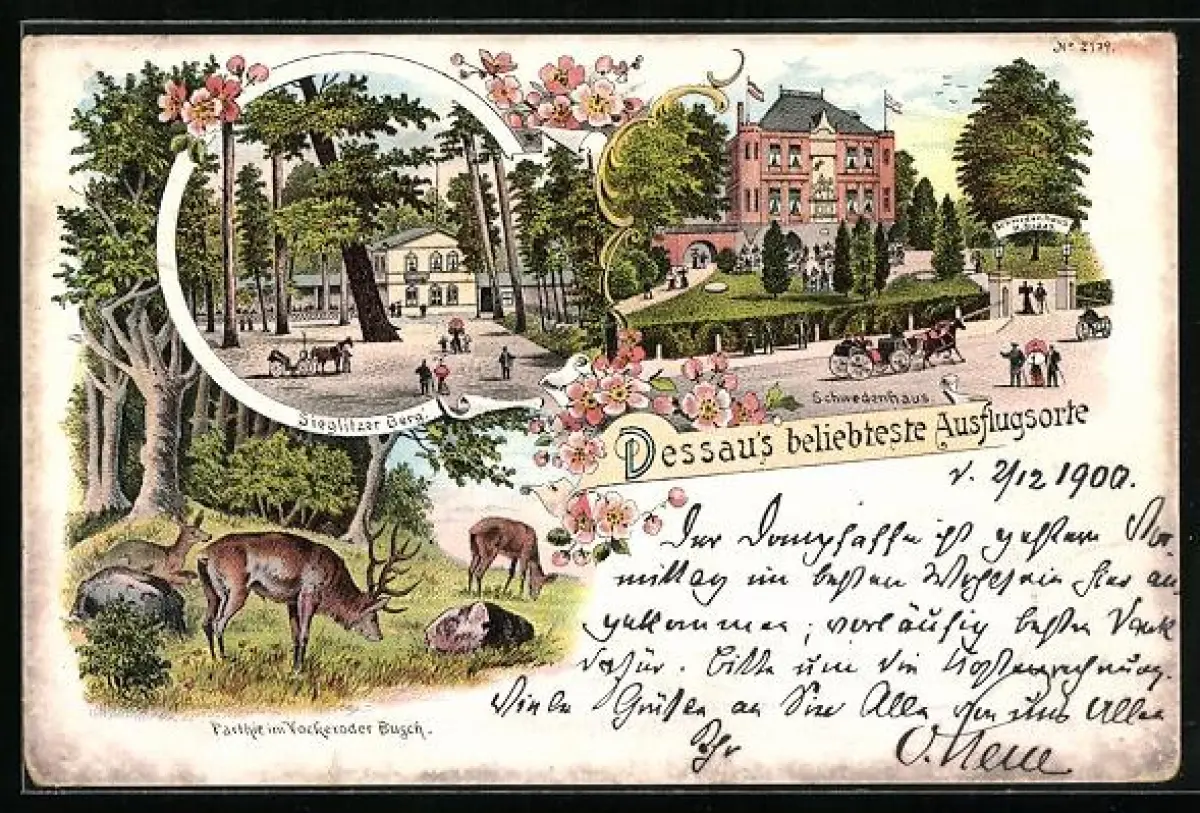 No. 2179.
Schwedenhaus
Sieglitzer Berg.
Schwedenhaus
Dessau's beliebteste Ausflugsorte
v. 2/12 1900.
Der Dompfaffe ist gestern Vor-
mittag im besten Wohlsein hier an-
gekommen; vorläufig besten Dank
dafür. Bitte um die Kostenrechnung.
Viele Grüße an Sie Alle von uns Allen
Ihr
Parthie im Vockeroder Busch.